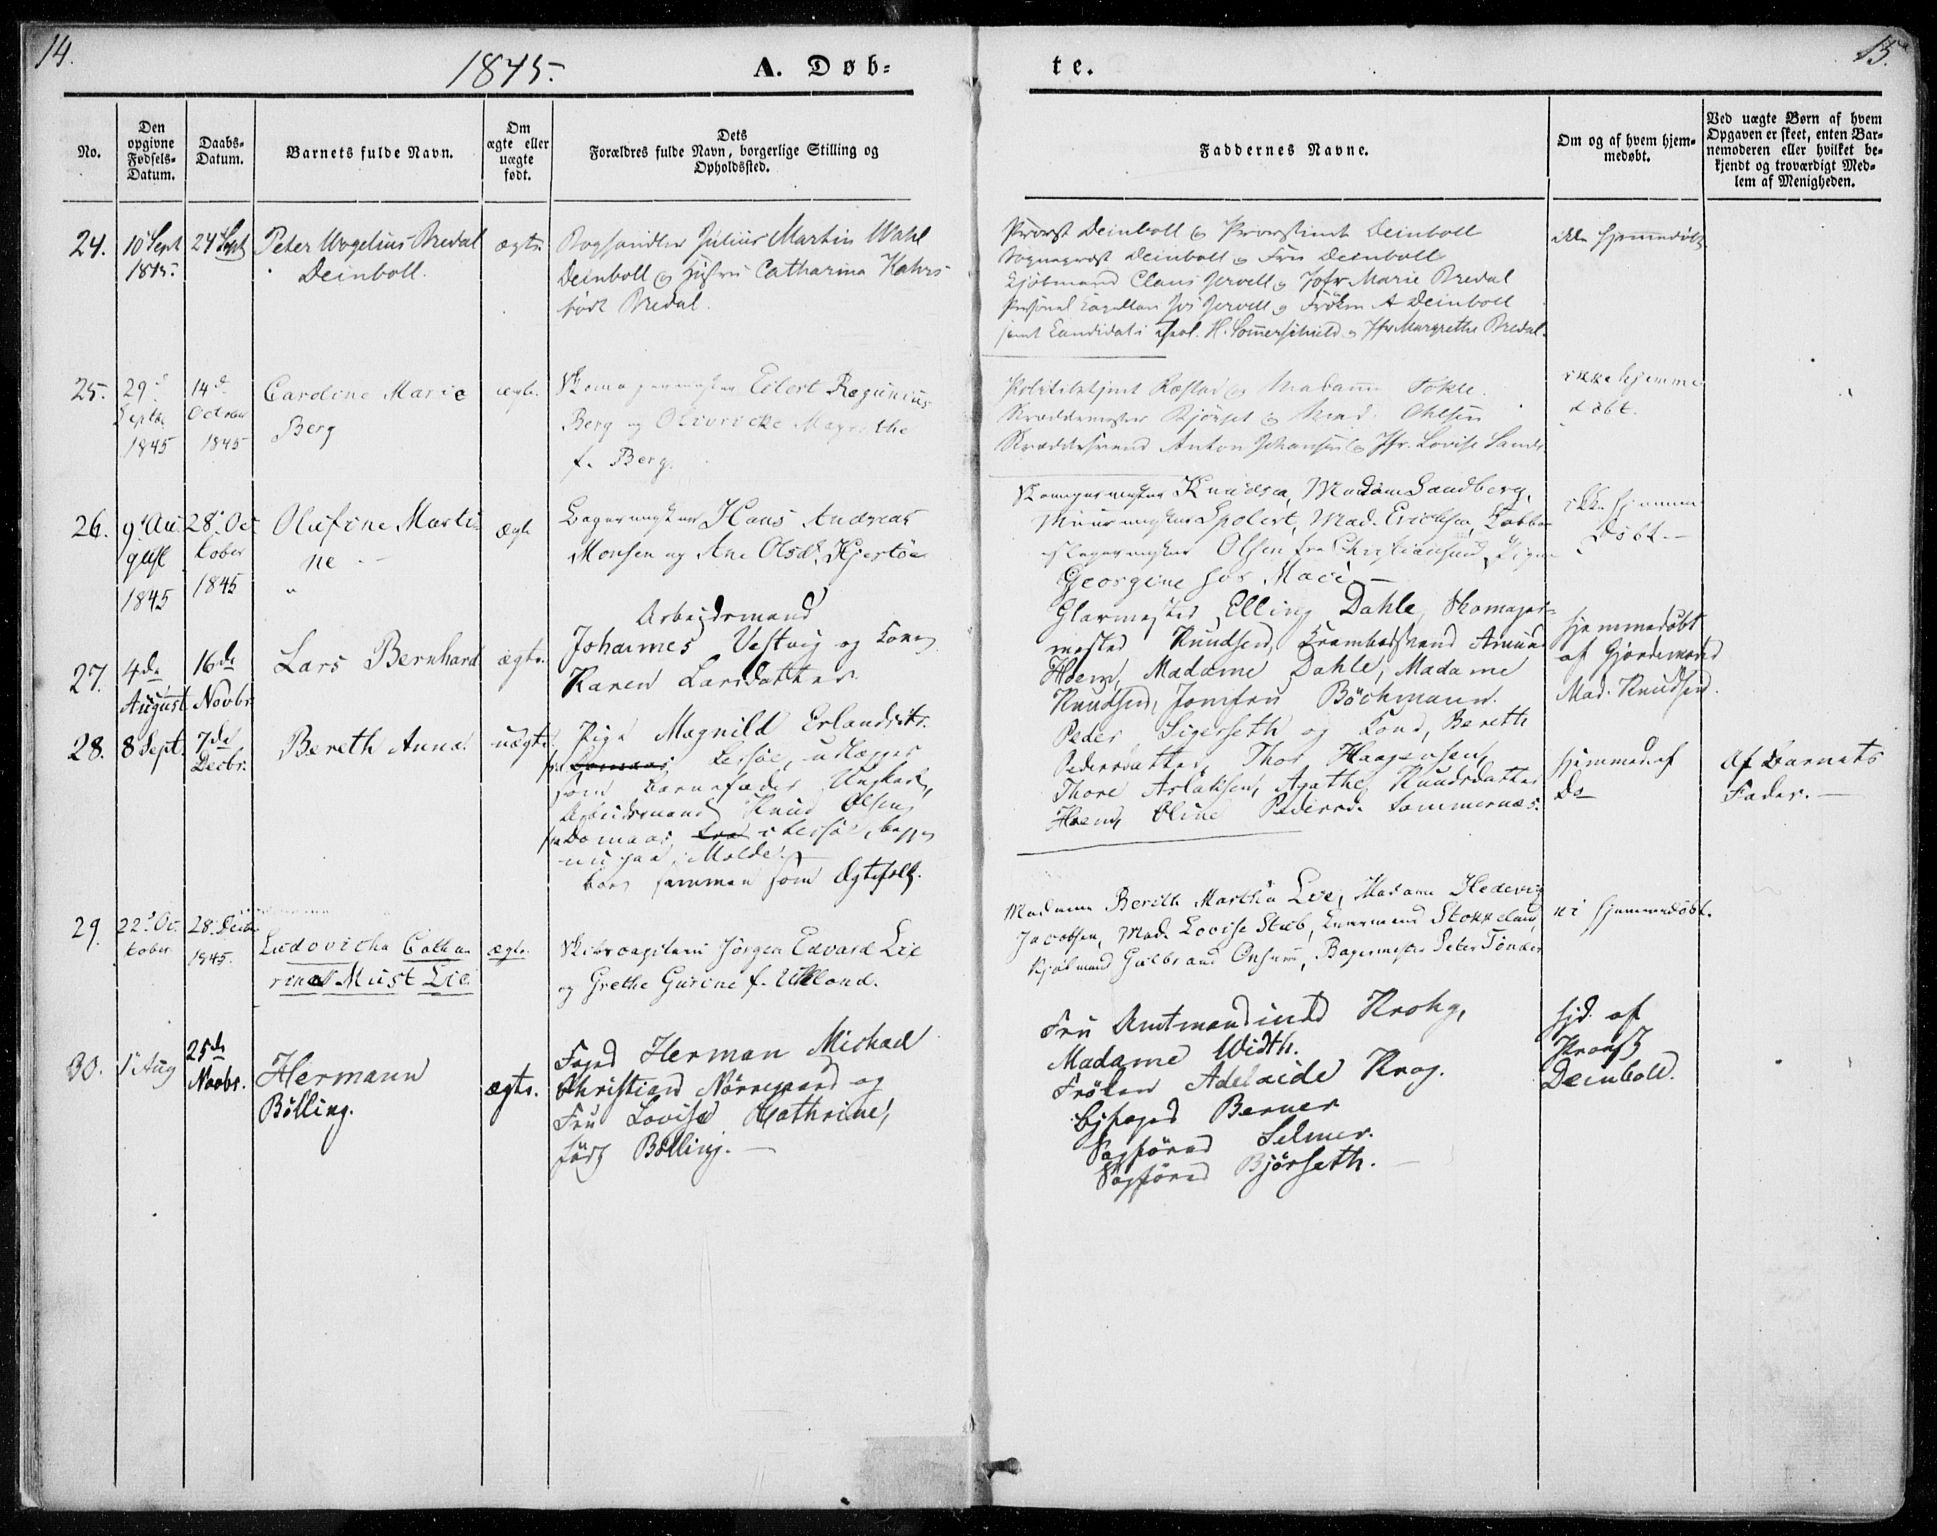 14.
1845.
A. Døb-
te.
15.
No.
Den opgivne Fødsels-Datum.
Daabs-Datum.
Barnets fulde Navn.
Om ægte eller uægte født.
Dets Forældres fulde Navn, borgerlige Stilling og Opholdssted.
Faddernes Navne.
Om og af hvem hjem-medøbt.
Ved uægte Børn af hvem Opgaven er skeet, enten Bar-nemoderen eller hvilket be-kjendt og troværdigt Med-lem af Menigheden.
24.
10 Sept
1845.
24 Sept
Peter Wogelius Bredal
Deinboll.
ægte
Boghandler Julius Martin Wahl
Deinboll og Hustru Catharina Kahrs
født Bredal.
Provst Deinboll og Provstinde Deinboll
Sognepræst Deinboll og Fru Deinboll
Kjøbmand Claus Jervell og Jofr Marie Bredal
Personel Capellan Jervell og Frøken A Deinboll
samt Candidat H. Sommerschield og Jfr Margrethe Bredal.
ikke hjemmedøbt
25.
29
Septbr
1845
14de
October
1845
Caroline Marie
Berg
ægte.
Skomagermester Eilert Regunius
Berg og Margrethe
f. Berg.
Madame
Skræddermester Bjørset og Mad. Ohlsen
Skræddersvend Anton Johansen og Jfr. Lovise
ikke hjemme
døbt.
26.
9' Au
gust
1845
28' Oc
tober
1845
Olufine Marti
ne
ægte
Bagermester Hans Andreas
Monsen og Ane Olsd. Hjertøe
Skomagermester Knudsen, Madame Sandberg,
Muurmester Mad. Erichsen, Kobber
slagermester Olsen fra Christiansund, Pigen
Georgine hos Maci
ikke hjemme
døbt.
27.
4de
August
16de
Novbr.
Lars Bernhard
ægte.
Arbeidsmand
Johannes Vestvig og Kone
Karen Larsdatter.
Glarmester Elling Dahle, Skomager-
mester Knudsen, Krambodsvend Amund
Hoem, Madame Dahle, Madame
Knudsen, Jomfru Böchmann.
hjemmedøbt
af Gjordemoder
Mad. Knudsen.
28.
8 Sept.
7de
Decbr.
Bereth Anna.
uægte
Pige Magnild Erlandsdtr.
fra Lessøe, udlægger
som Barnefader Ungkarl,
Arbeidsmand Knud Olsen
fra Domaas i Lessøe, begge
nu paa Molde.
boer sammen som Ægtefolk.
Peder Sigerseth og Kone, Bereth
Pedersdatter, Thor Haagensen,
Thore Aslaksen, Agathe Knudsdatter
Hoem, Oline Pedersd. Sommernæs.
hjemmed. af
do
Af Barnets
Fader.
29.
22' Oc
tober
28. Decbr.
1845.
Ludovicka Catha
rina Must Lie
ægte.
Skibscapitain Jørgen Edvard Lie
og Grethe Gurine f. Uhland.
Madame Berith Martha Lie, Madame Hedevig
Jacobsen, Mad. Lovise Stub, Stokkeland,
Kjøbmand Gulbrand Onsum, Bagermester Peter Tønder
ei hjemmedøbt.
30.
1' Aug
25de
Novbr.
Hermann
Bölling.
ægte.
Foged Herman Michael
Christian Nörregaard og
Fru Lovise Cathrine,
född Bölling.
Fru Amtmandinde Krohg,
Madame Width.
Frøken Adelaide Krog.
Byfoged Berner
Sagfører Selmer.
Sagfører Bjørseth.
hjd. af
Provst
Deinboll.